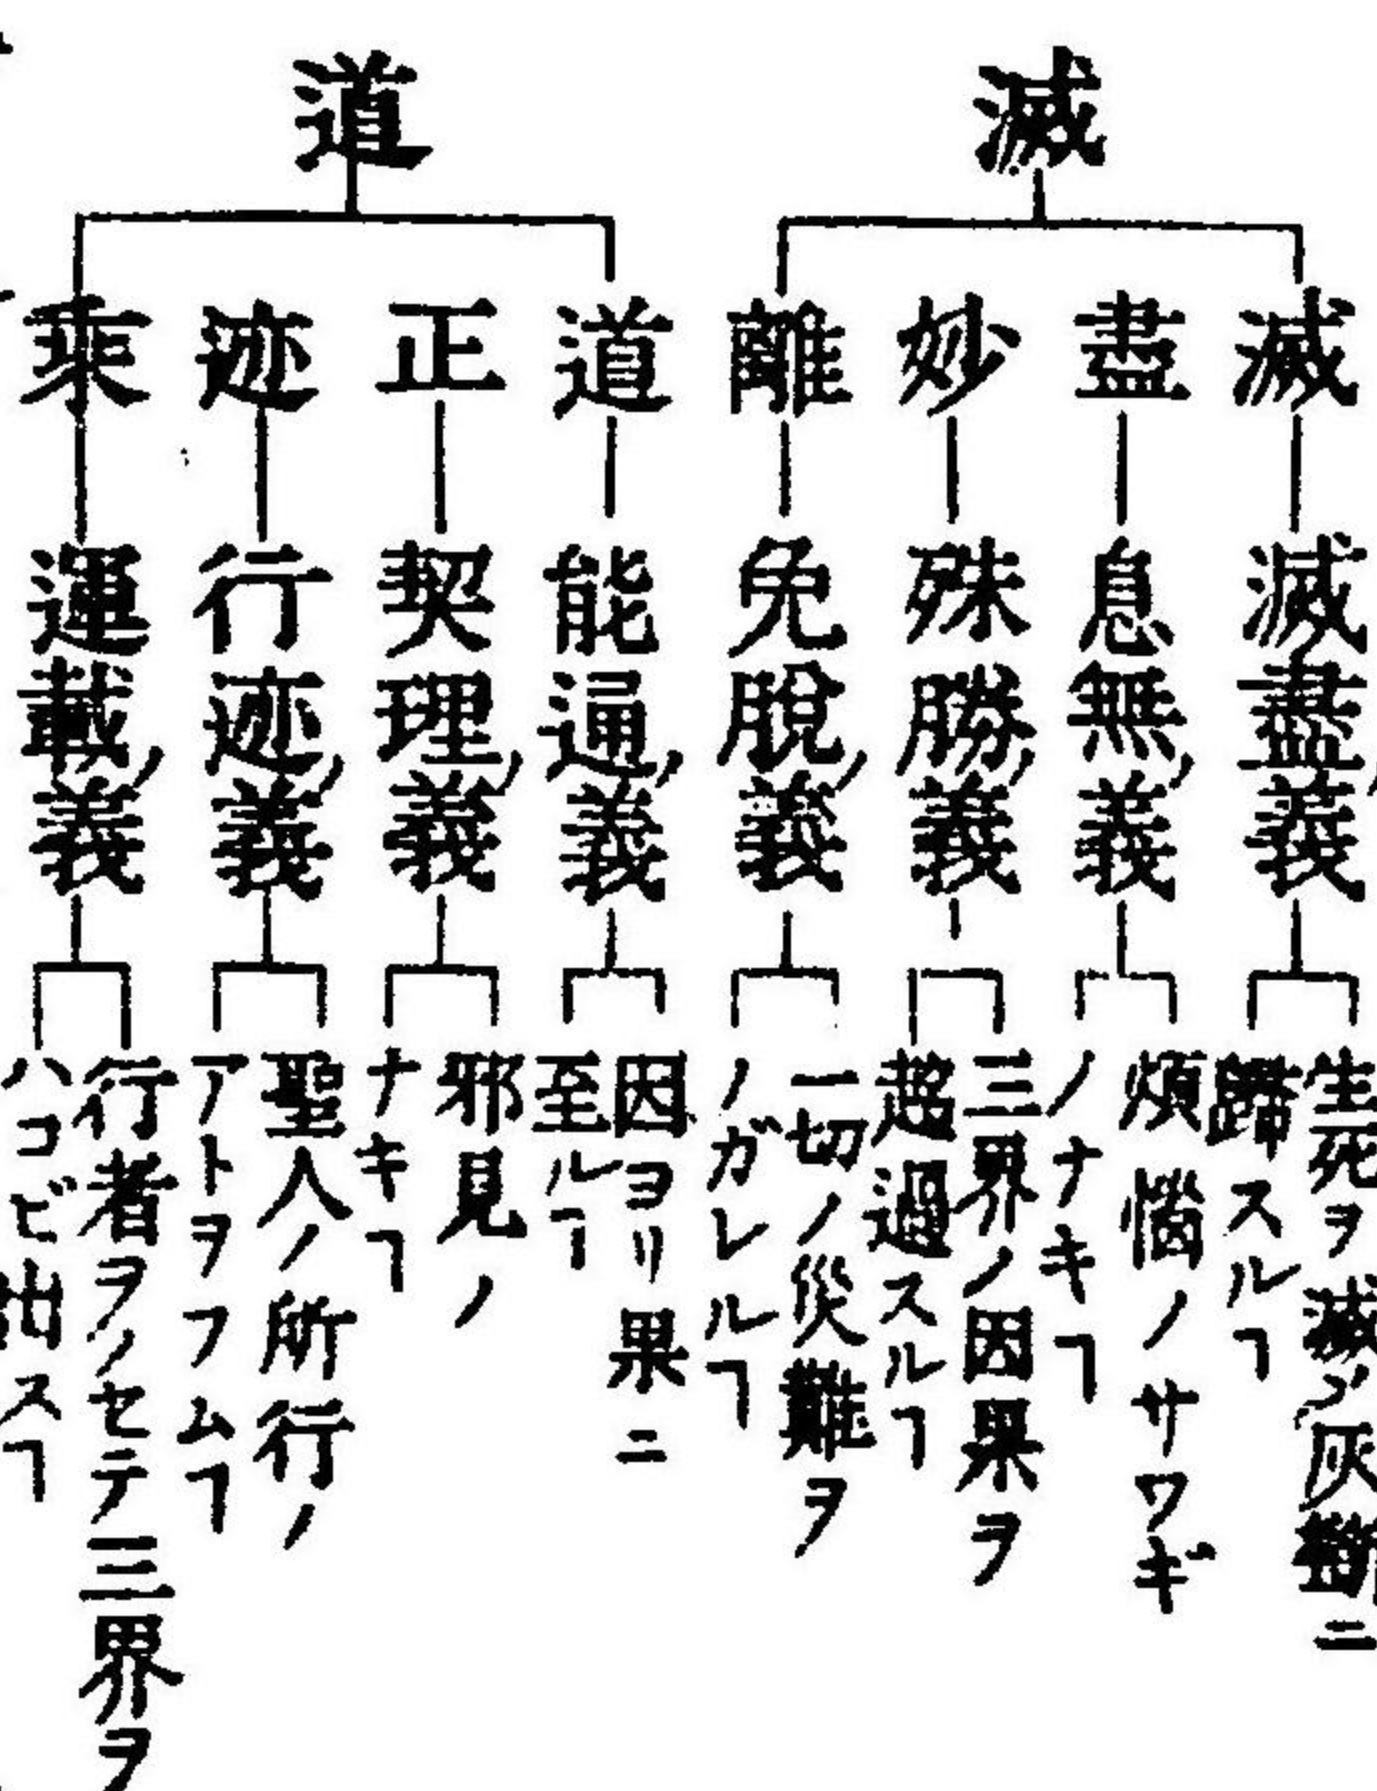 滅
滅
滅盡ノ義
生死ヲ滅ノ灰斷ニ
歸スルヿ
盡
息無ノ義
煩惱ノサワギ
ノナキヿ
妙
殊勝ノ義
三界ノ因果ヲ
超過スルヿ
離
免脫ノ義
一切ノ災難ヲ
ノガレルヿ
道
道
能通ノ義
因ヨリ果ニ
至ルヿ
正
契理ノ義
邪見ノ
ナキヿ
迹
行迹ノ義
聖人ノ所行ノ
アトヲフムヿ
乘
運載ノ義
行者ヲノセテ三界ヲ
ハコビ出スヿ